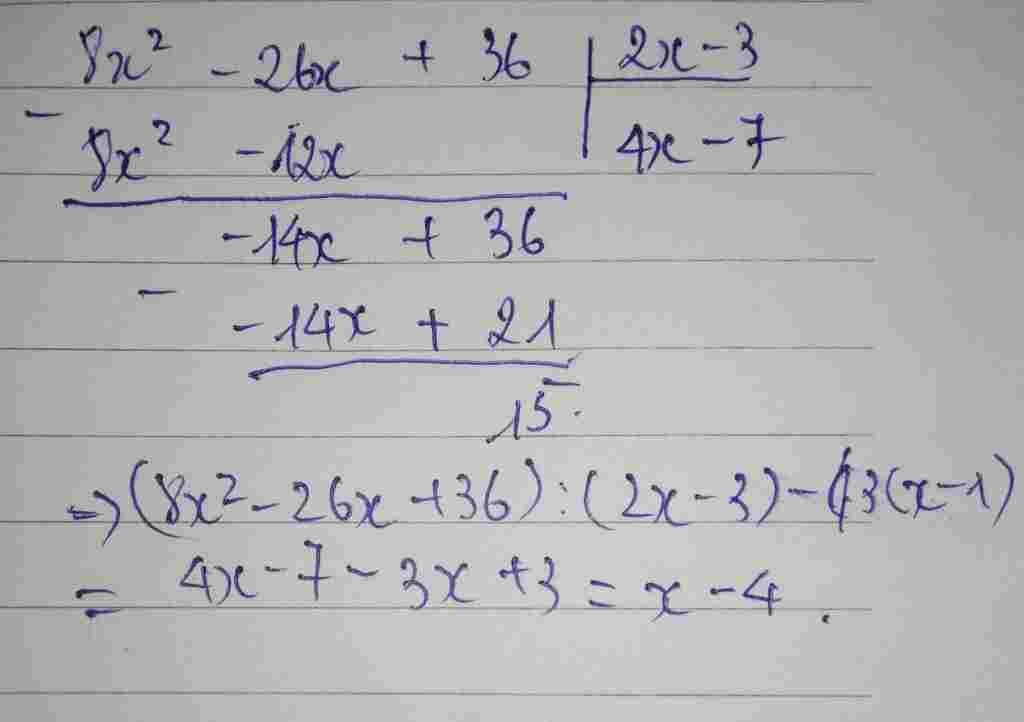 8x² - 26x + 36 | 2x - 3
- 8x² - 12x | 4x - 7
- 14x + 36
- - 14x + 21
15.
=> (8x² - 26x + 36) : (2x - 3) - 3(x - 1)
= 4x - 7 - 3x + 3 = x - 4.